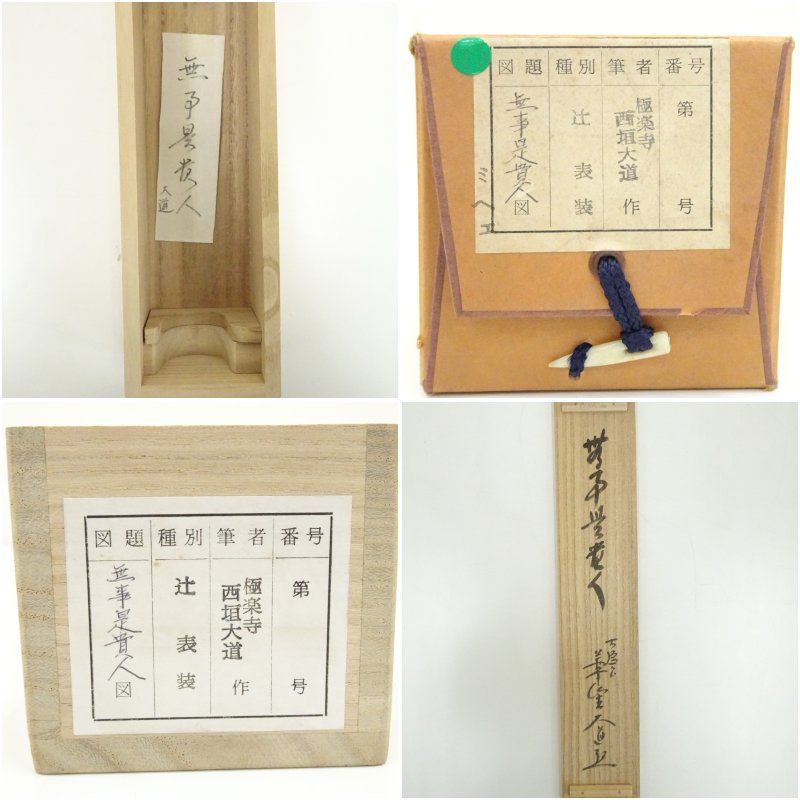 無事是貴人
大道
図題 種別 筆者 番号
無事是貴人図
辻表装
極楽寺
西垣大道作
第 号
ミヘヱ
図題 種別 筆者 番号
無事是貴人図
辻表装
極楽寺
西垣大道作
第 号
無事是貴人